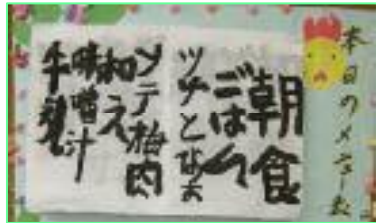 本日のメニュー
朝食
ごはん
ツナとなお
ソテ梅肉
和え
味噌汁
牛乳